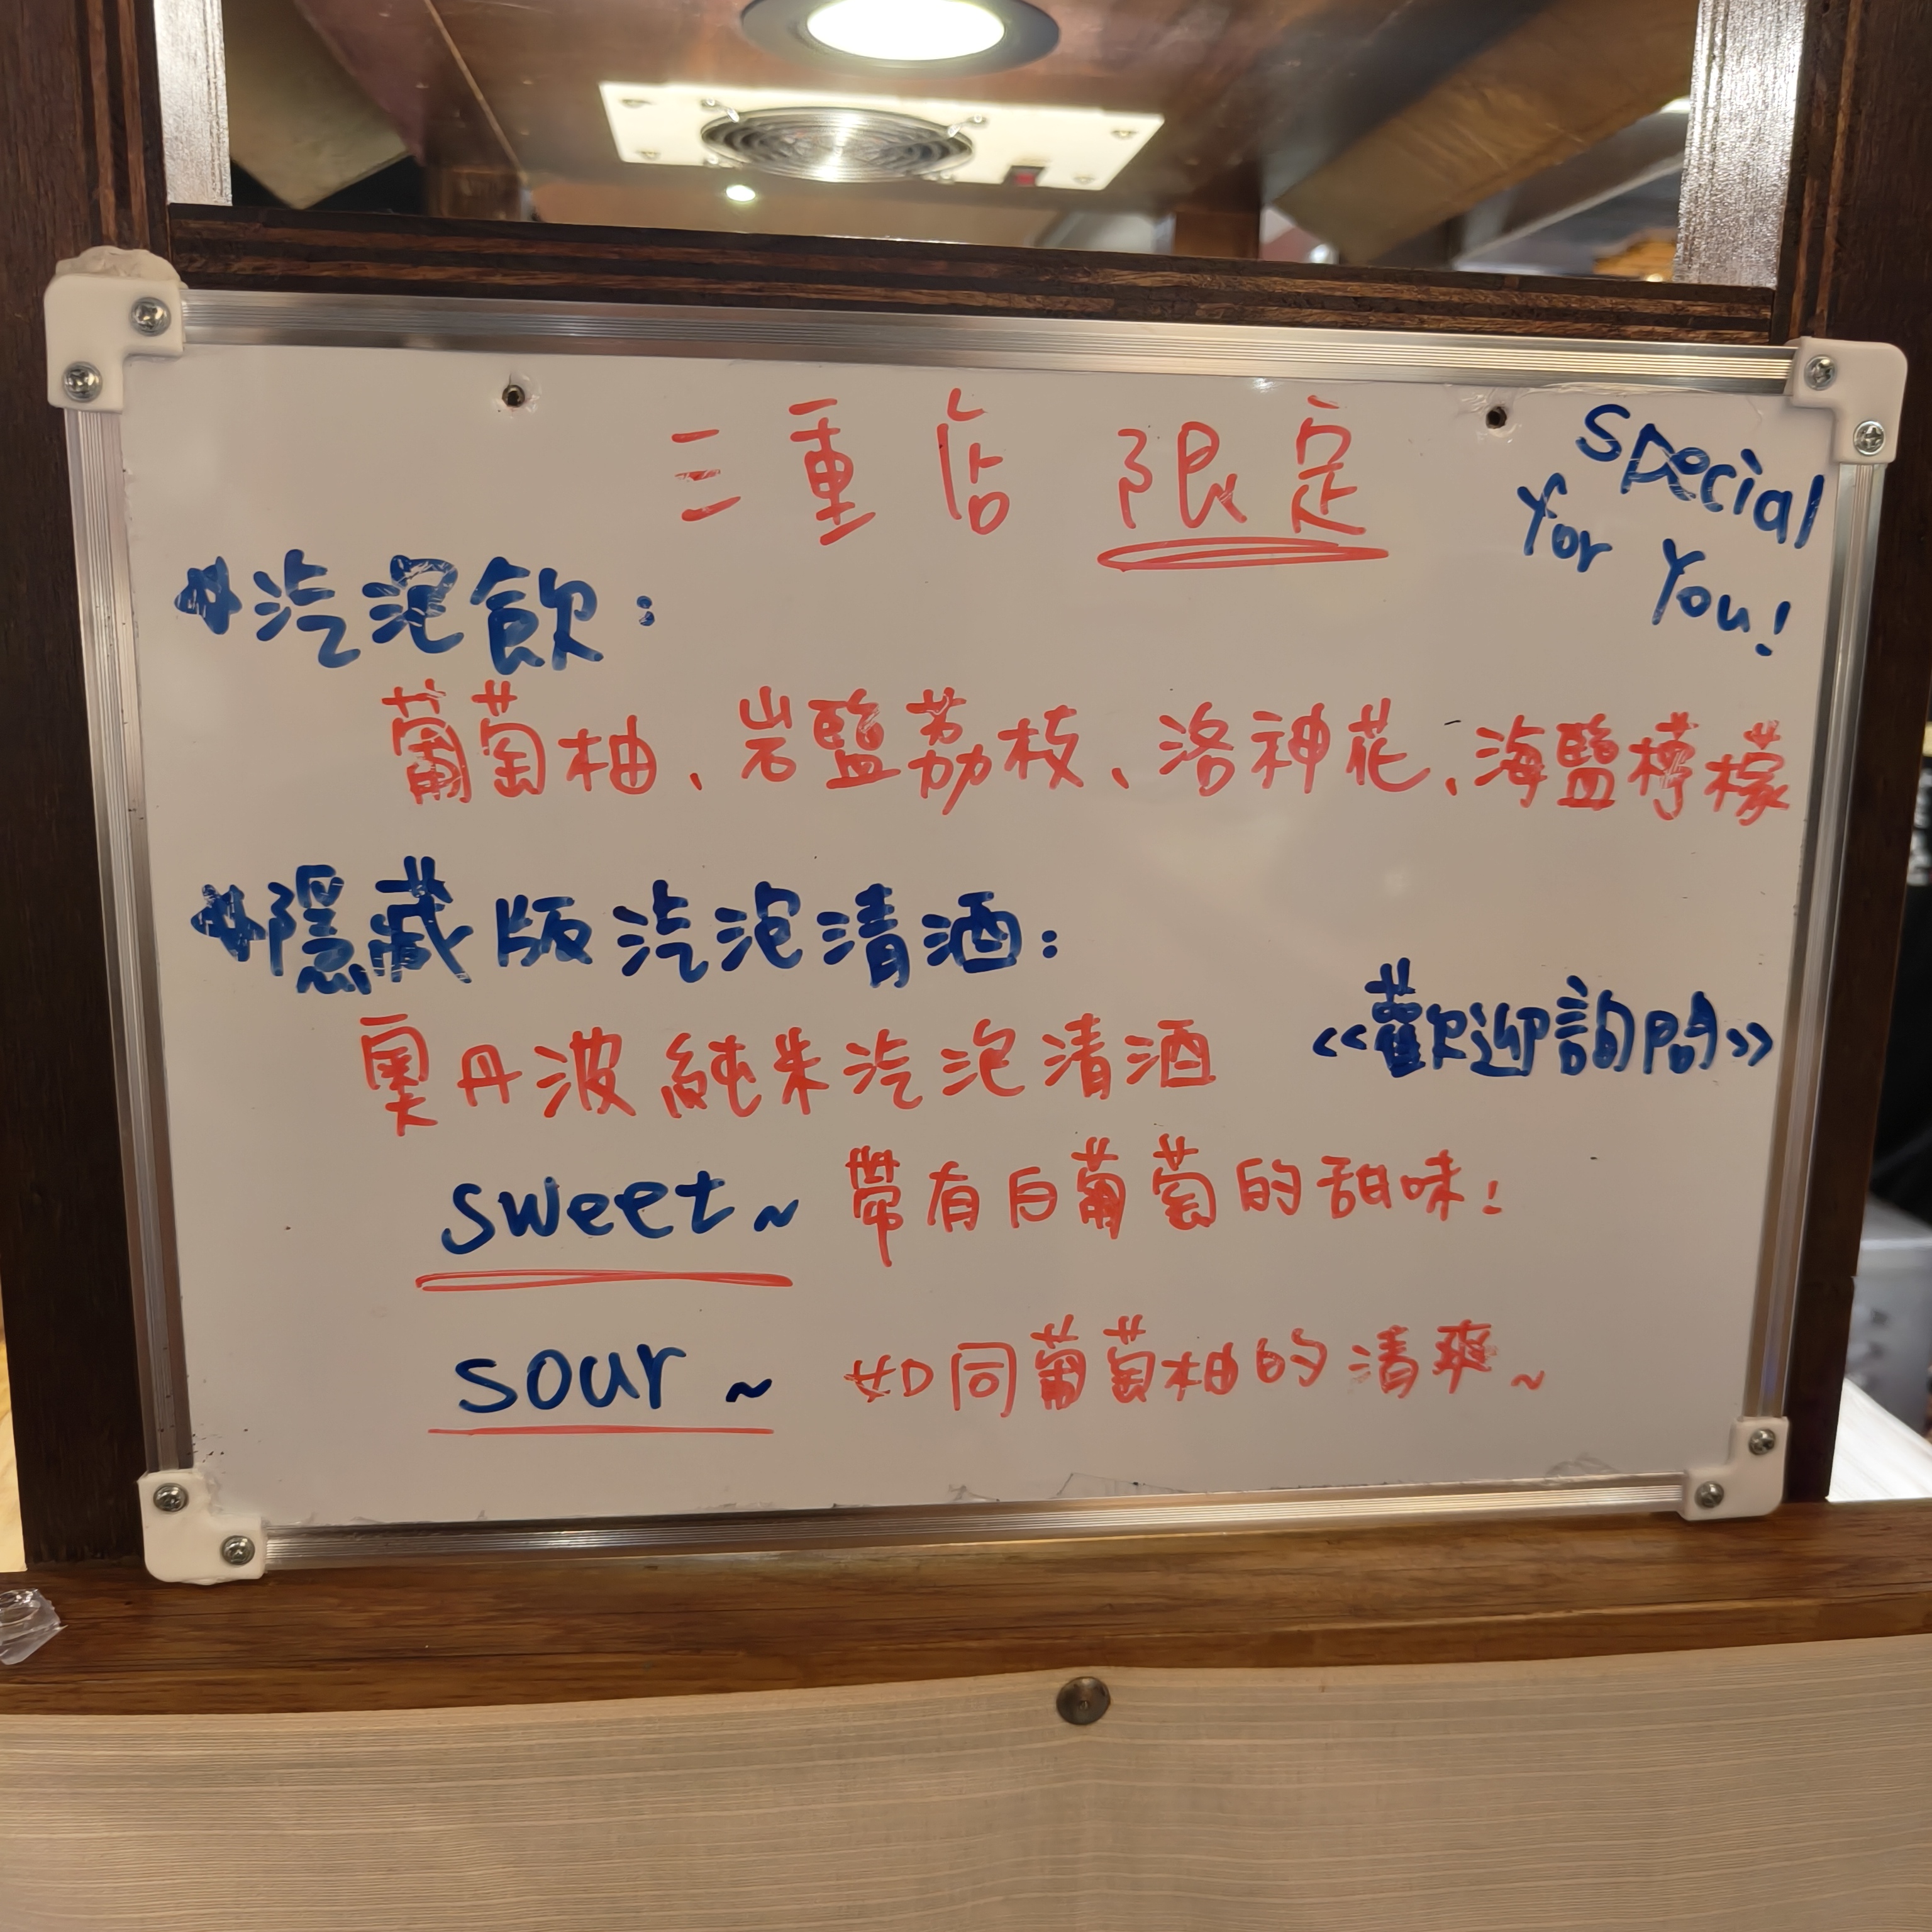 三重店限定
Special
For You!
汽泡飲：
葡萄柚、岩鹽荔枝、洛神花、海鹽檸檬
隱藏版汽泡清酒：
<<歡迎詢問>>
奧丹波純米汽泡清酒
sweet~ 帶有白葡萄的甜味!
sour~ 如同葡萄柚的清爽~